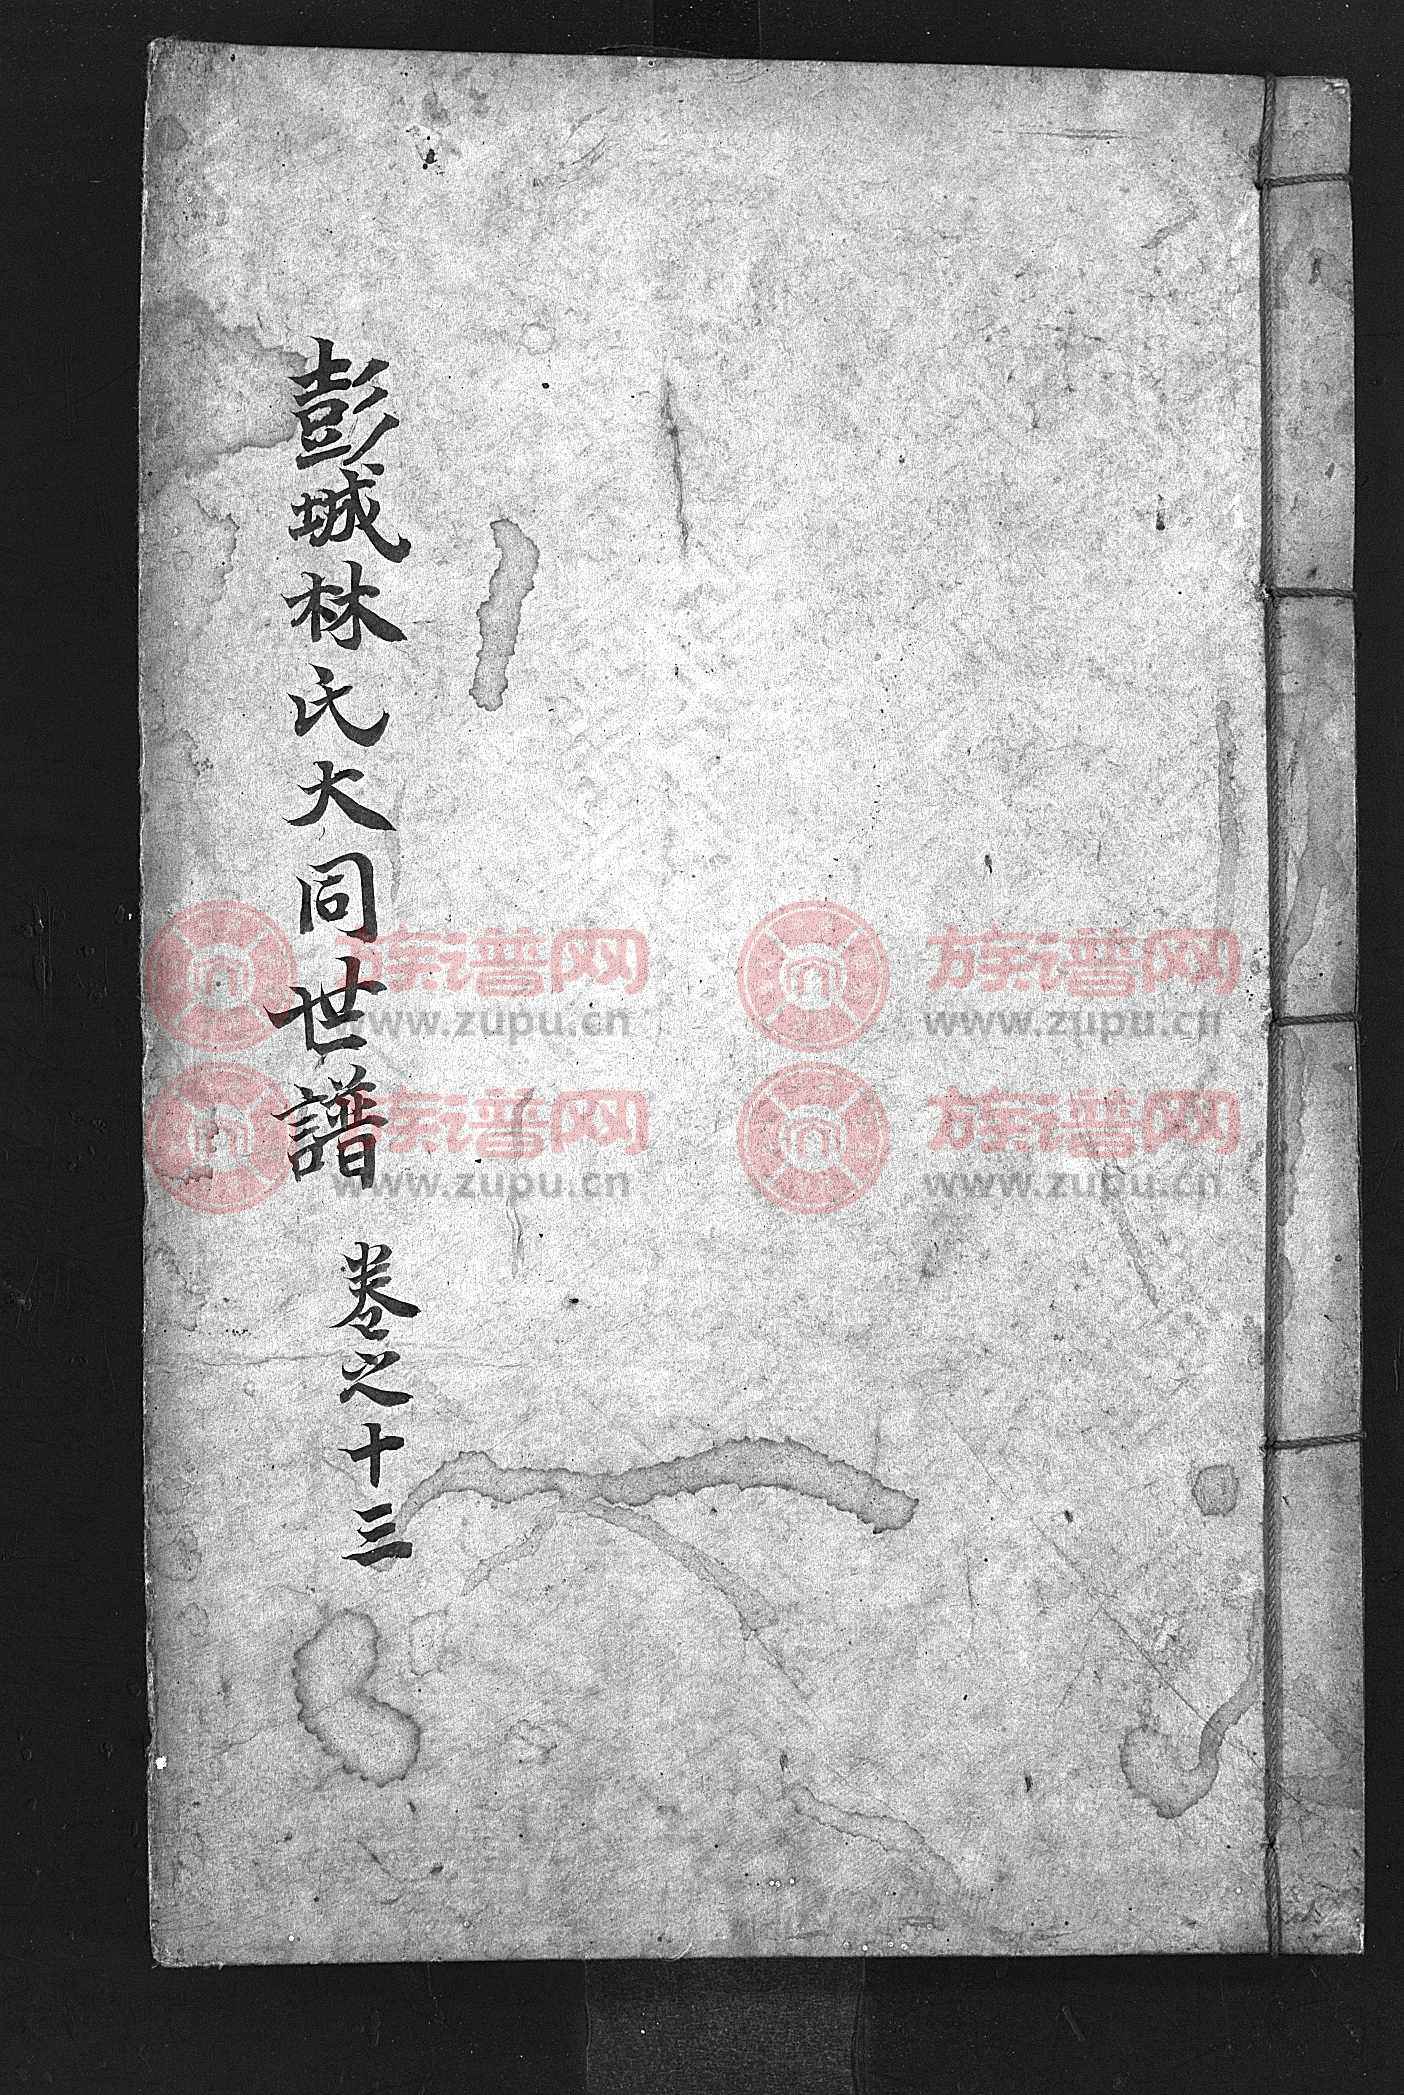 彭城林氏大同世譜
卷之十三
族谱网 族谱网
www.zupu.cn www.zupu.cn
族谱网 族谱网
www.zupu.cn www.zupu.cn